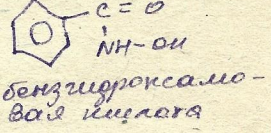 C = O
NH-OH
бензгидроксамо-
вая кислота